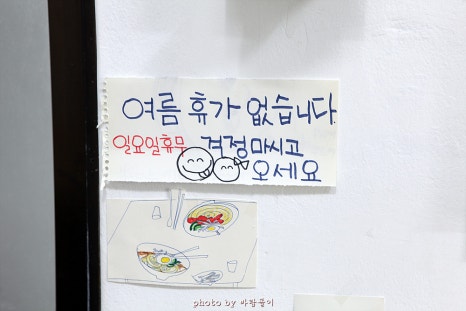 여름 휴가 없습니다
일요일휴무 걱정마시고
오세요
photo by 바람풀이